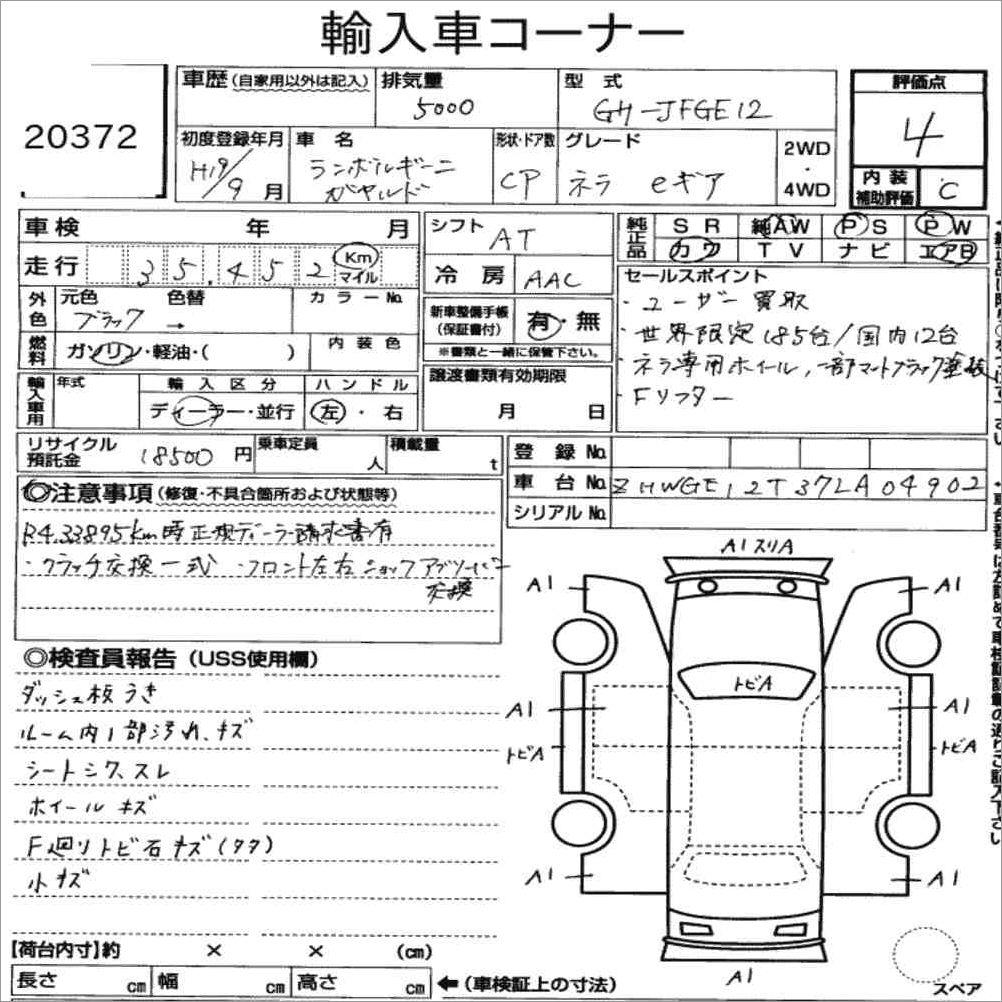 輸入車コーナー
20372
車歴(自家用以外は記入) 排気量 5000 型式 GH-JFGE12
評価点 4
初度登録年月 H19/9月 車名 ランボルギーニ ガヤルド 形状・ドア数 CP グレード ネラ eギア 2WD・4WD
内装補助評価 C
車検 年 月 シフト AT 純正品 SR 純AW PS PW
走行 35,452 Km マイル 冷房 AAC カワ TV ナビ エアB
外色 元色 ブラック 色替 → カラーNo.
新車整備手帳(保証書付) 有・無
※書類と一緒に保管下さい。
燃料 ガソリン・軽油・( ) 内装色
譲渡書類有効期限 月 日
輸入車用 年式 輸入区分 ディーラー・並行 ハンドル 左・右
セールスポイント
・ユーザー買取
・世界限定185台/国内12台
・ネラ専用ホイール,一部マットブラック塗装
・Fリフター
リサイクル預託金 18500円 乗車定員 人 積載量 t
登録No.
車台No. ZHWGE12T37LA04902
シリアルNo.
◎注意事項(修復・不具合箇所および状態等)
R4.33895km時正規ディーラー請求書有
・クラッチ交換一式 ・フロント左右ショックアブソーバー
交換
◎検査員報告(USS使用欄)
ダッシュ板うき
ルーム内1部汚れ、キズ
シートシワ、スレ
ホイールキズ
F廻りトビ石キズ(タタ)
小キズ
A1スリA
A1 A1
トビA
A1 A1
トビA トビA
A1 A1
A1
スペア
【荷台内寸】約 × × (cm)
長さ cm 幅 cm 高さ cm ←(車検証上の寸法)